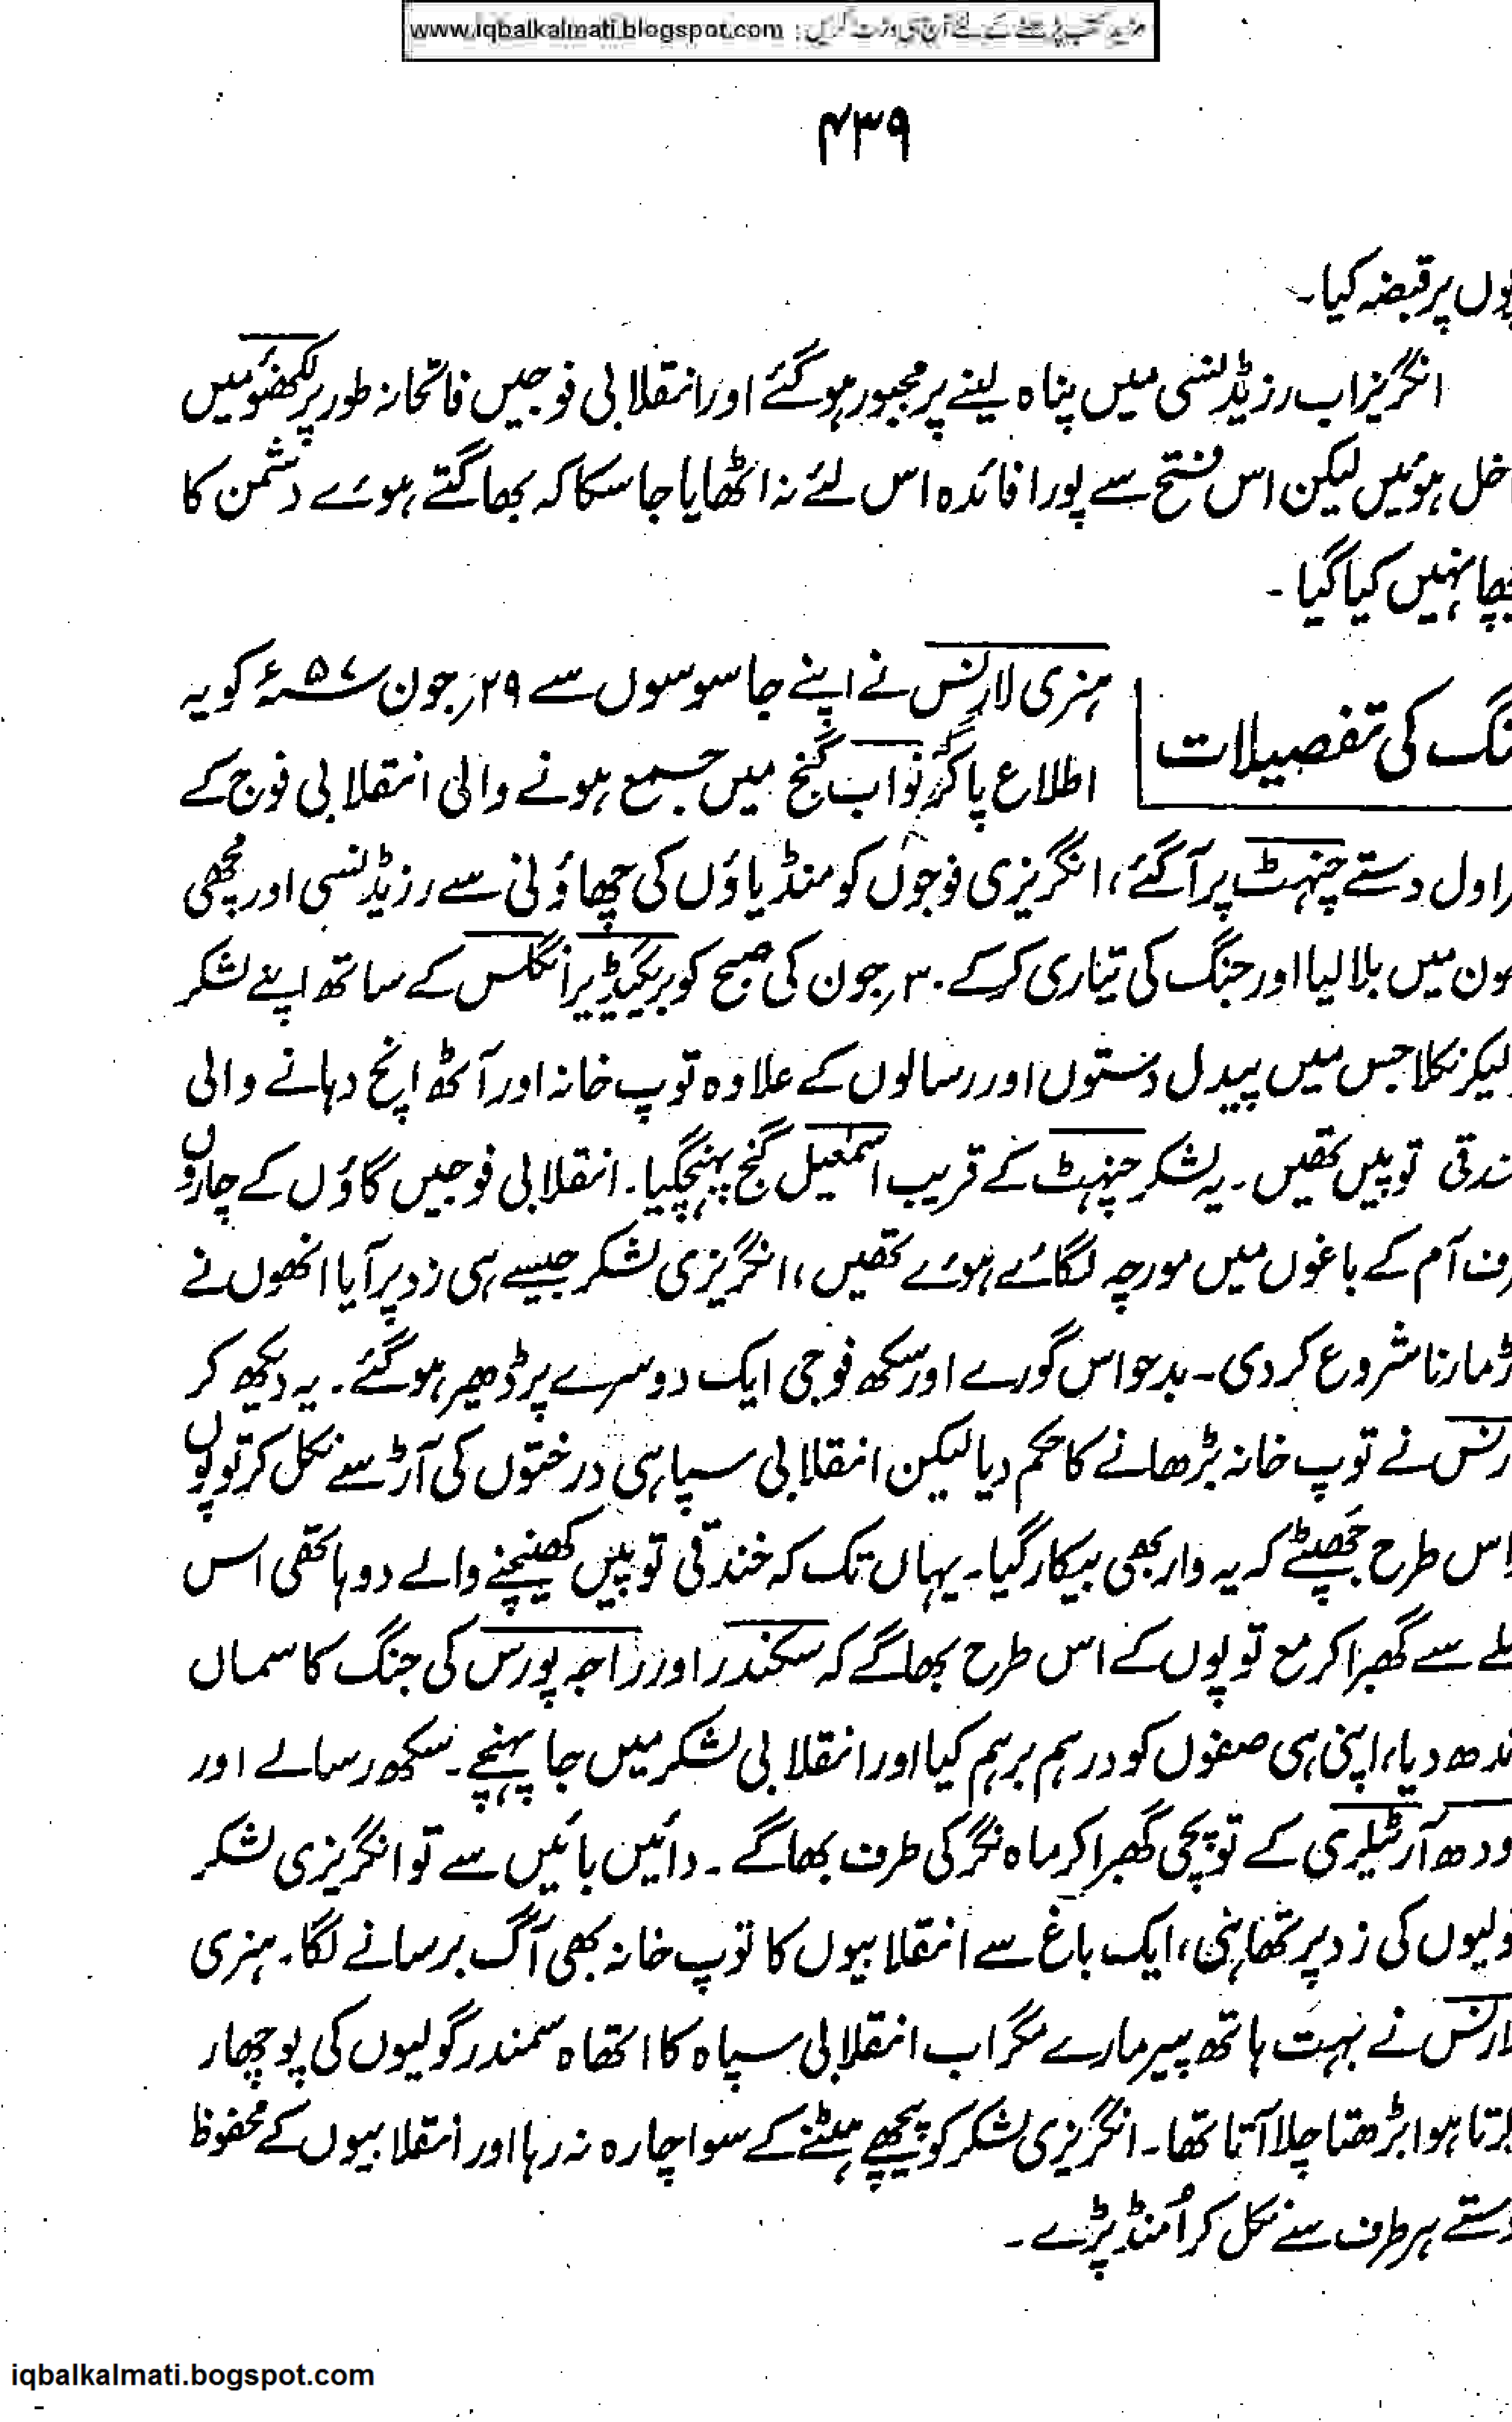 مزید کتب پڑھنے کے لئے آج ہی وزٹ کریں : www.iqbalkalmati.blogspot.com
۴۳۹
وں پر قبضہ کیا۔
انگریز اب رزیڈنسی میں پناہ لینے پر مجبور ہوگئے اور انقلابی فوجیں فاتحانہ طور پر لکھنؤ میں
اخل ہوئیں لیکن اس فتح سے پورا فائدہ اس لئے نہ اٹھایا جا سکا کہ بھاگتے ہوئے دشمن کا
چھا نہیں کیا گیا ۔
نگ کی تفصیلات
ہنری لارنس نے اپنے جاسوسوں سے ۲۹؍جون ۵۷ء کو یہ
اطلاع پا کر نواب گنج میں جمع ہونے والی انقلابی فوج کے
راول دستے چنہٹ پر آگئے، انگریزی فوجوں کو منڈیاؤں کی چھاؤنی سے رزیڈنسی اور مچھی
ون میں بلا لیا اور جنگ کی تیاری کرکے ۳۰؍جون کی صبح کو بریگیڈیر انگلس کے ساتھ اپنے لشکر
لیکر نکلا جس میں پیدل دستوں اور رسالوں کے علاوہ توپ خانہ اور آٹھ انچ دہانے والی
ندقی توپیں تھیں۔ یہ لشکر چنہٹ کے قریب اسمٰعیل گنج پہنچگیا۔ انقلابی فوجیں گاؤں کے چاروں
رف آم کے باغوں میں مورچہ لگائے ہوئے تھیں، انگریزی لشکر جیسے ہی زد پر آیا انھوں نے
ڑ مارنا شروع کر دی۔ بدحواس گورے اور سکھ فوجی ایک دوسرے پر ڈھیر ہوگئے۔ یہ دیکھ کر
رنس نے توپ خانہ بڑھانے کا حکم دیا لیکن انقلابی سپاہی درختوں کی آڑ سے نکل کر توپوں
اس طرح جھپٹے کہ یہ وار بھی بیکار گیا۔ یہاں تک کہ خندقی توپیں کھینچنے والے دو ہاتھی اس
ملے سے گھبرا کر مع توپوں کے اس طرح بھاگے کہ سکندر اور راجہ پورس کی جنگ کا سماں
ندھ دیا، اپنی ہی صفوں کو درہم برہم کیا اور انقلابی لشکر میں جا پہنچے۔ سکھ رسالے اور
ودھ آرٹیلری کے توپچی گھبرا کر ماہ نگر کی طرف بھاگے ۔ دائیں بائیں سے تو انگریزی لشکر
ولیوں کی زد پر تھا ہی، ایک باغ سے انقلابیوں کا توپ خانہ بھی آگ برسانے لگا۔ ہنری
لارنس نے بہت ہاتھ پیر مارے مگر اب انقلابی سپاہ کا اتھاہ سمندر گولیوں کی بوچھار
رتا ہوا بڑھتا چلا آتا تھا۔ انگریزی لشکر کو پیچھے ہٹنے کے سوا چارہ نہ رہا اور انقلابیوں کے محفوظ
دستے ہر طرف سے نکل کر اُمنڈ پڑے ۔
iqbalkalmati.bogspot.com